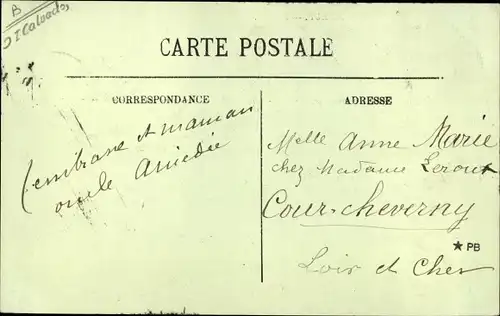 B
CARTE POSTALE
CORRESPONDANCE
ADRESSE
t'embrasse et maman
oncle Amédée
Melle Anne Marie
chez Madame Leroux
Cour-cheverny
★ PB
Loir et Cher